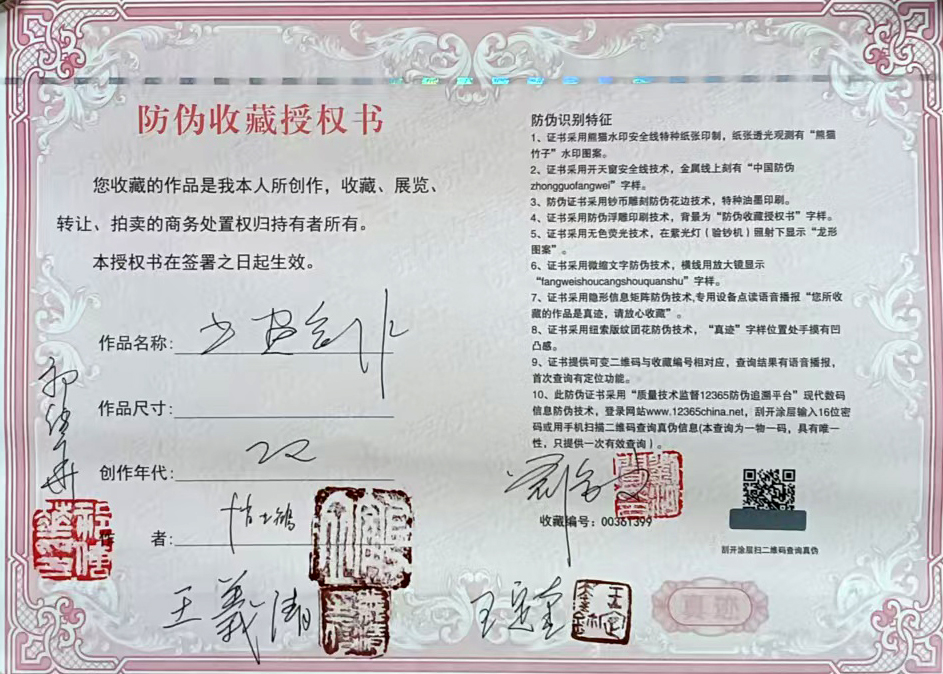 防伪收藏授权书
您收藏的作品是我本人所创作，收藏、展览、
转让、拍卖的商务处置权归持有者所有。
本授权书在签署之日起生效。
作品名称：
作品尺寸：
创作年代：
作 者：
王义涛
防伪识别特征
1、证书采用熊猫水印安全线特种纸张印制，纸张透光观测有“熊猫
竹子”水印图案。
2、证书采用开天窗安全线技术，金属线上刻有“中国防伪
zhongguofangwei”字样。
3、防伪证书采用钞币雕刻防伪花边技术，特种油墨印刷。
4、证书采用防伪浮雕印刷技术，背景为“防伪收藏授权书”字样。
5、证书采用无色荧光技术，在紫光灯（验钞机）照射下显示“龙形
图案”。
6、证书采用微缩文字防伪技术，横线用放大镜显示
“fangweishoucangshouquanshu”字样。
7、证书采用隐形信息矩阵防伪技术,专用设备点读语音播报“您所收
藏的作品是真迹，请放心收藏”。
8、证书采用纽索版纹团花防伪技术，“真迹”字样位置处手摸有凹
凸感。
9、证书提供可变二维码与收藏编号相对应，查询结果有语音播报，
首次查询有定位功能。
10、此防伪证书采用“质量技术监督12365防伪追溯平台”现代数码
信息防伪技术，登录网站www.12365china.net，刮开涂层输入16位密
码或用手机扫描二维码查询真伪信息(本查询为一物一码，具有唯一
性，只提供一次有效查询）。
收藏编号：00361399
刮开涂层扫二维码查询真伪